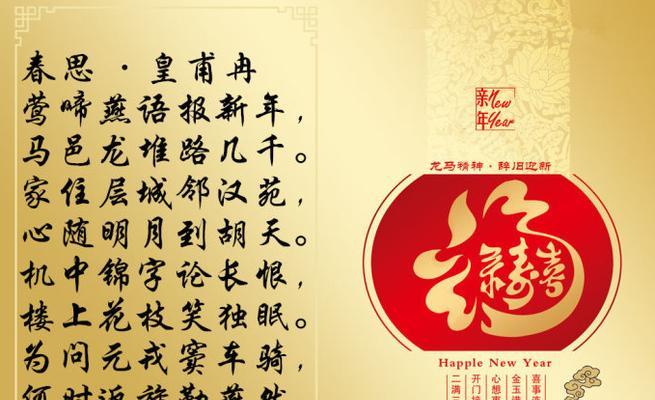 春思·皇甫冉
莺啼燕语报新年，
马邑龙堆路几千。
家住层城邻汉苑，
心随明月到胡天。
机中锦字论长恨，
楼上花枝笑独眠。
为问元戎窦车骑，
何时返旆勒燕然
新年
New
Year
龙马精神·辞旧迎新
福禄寿喜
Happle New Year
喜事连
金玉满
心想事
开门接
二满三